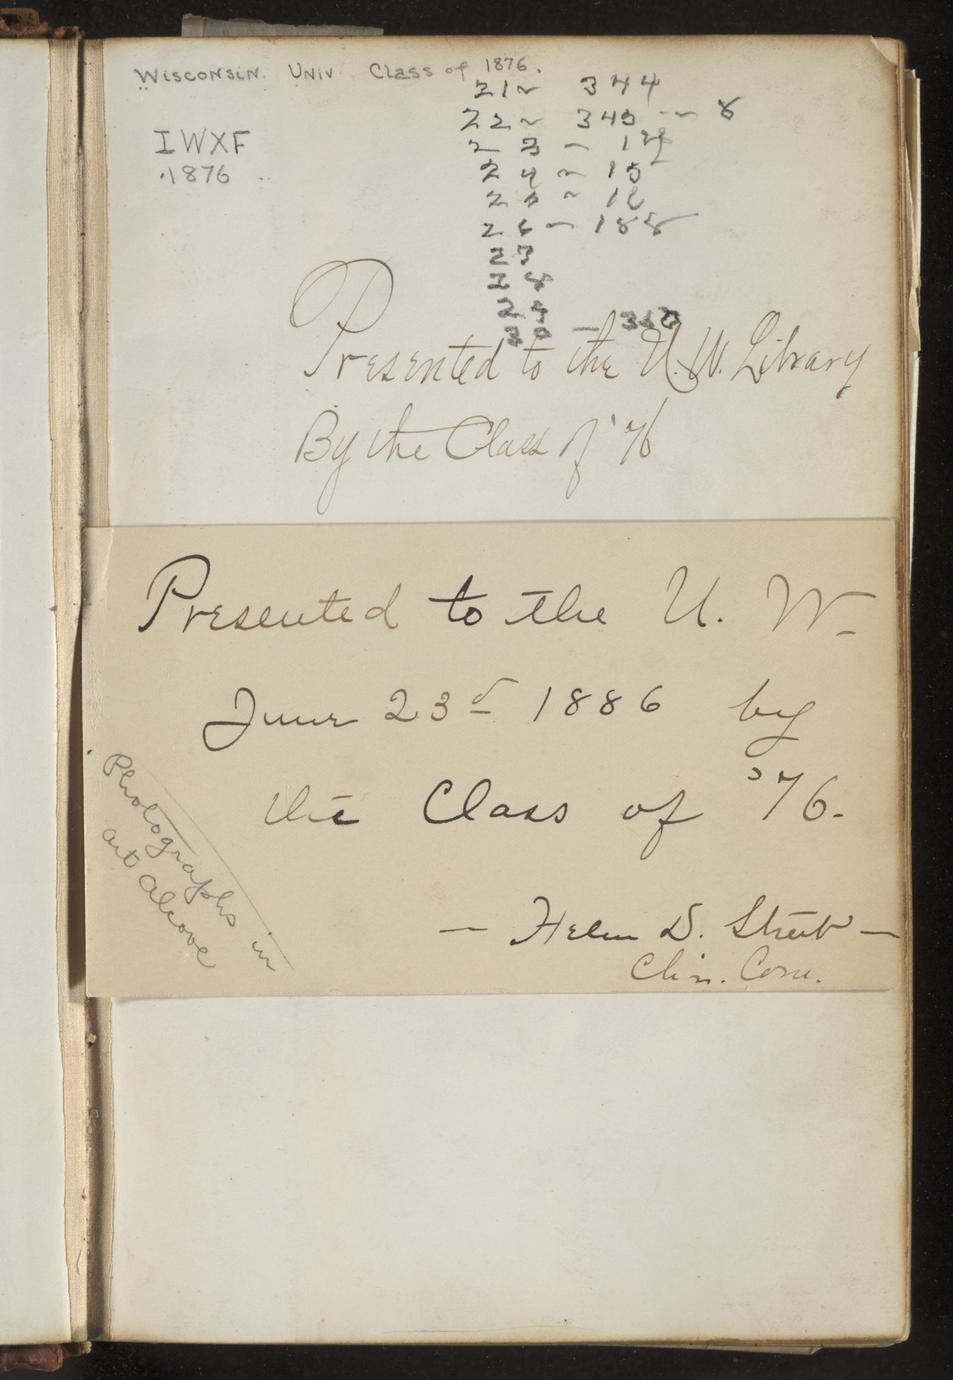 Wisconsin. Univ. Class of 1876.
IWXF
1876
21 ~ 344
22 ~ 345 - ~ 8
23 - 14
24 ~ 15
25 ~ 16
26 - 188
23
30 —
Presented to the U.W. Library
By the Class of '76
Presented to the U. W.
June 23d 1886 by
the Class of '76.
— Helen D. Street —
Com.
Photographs in
art alcove